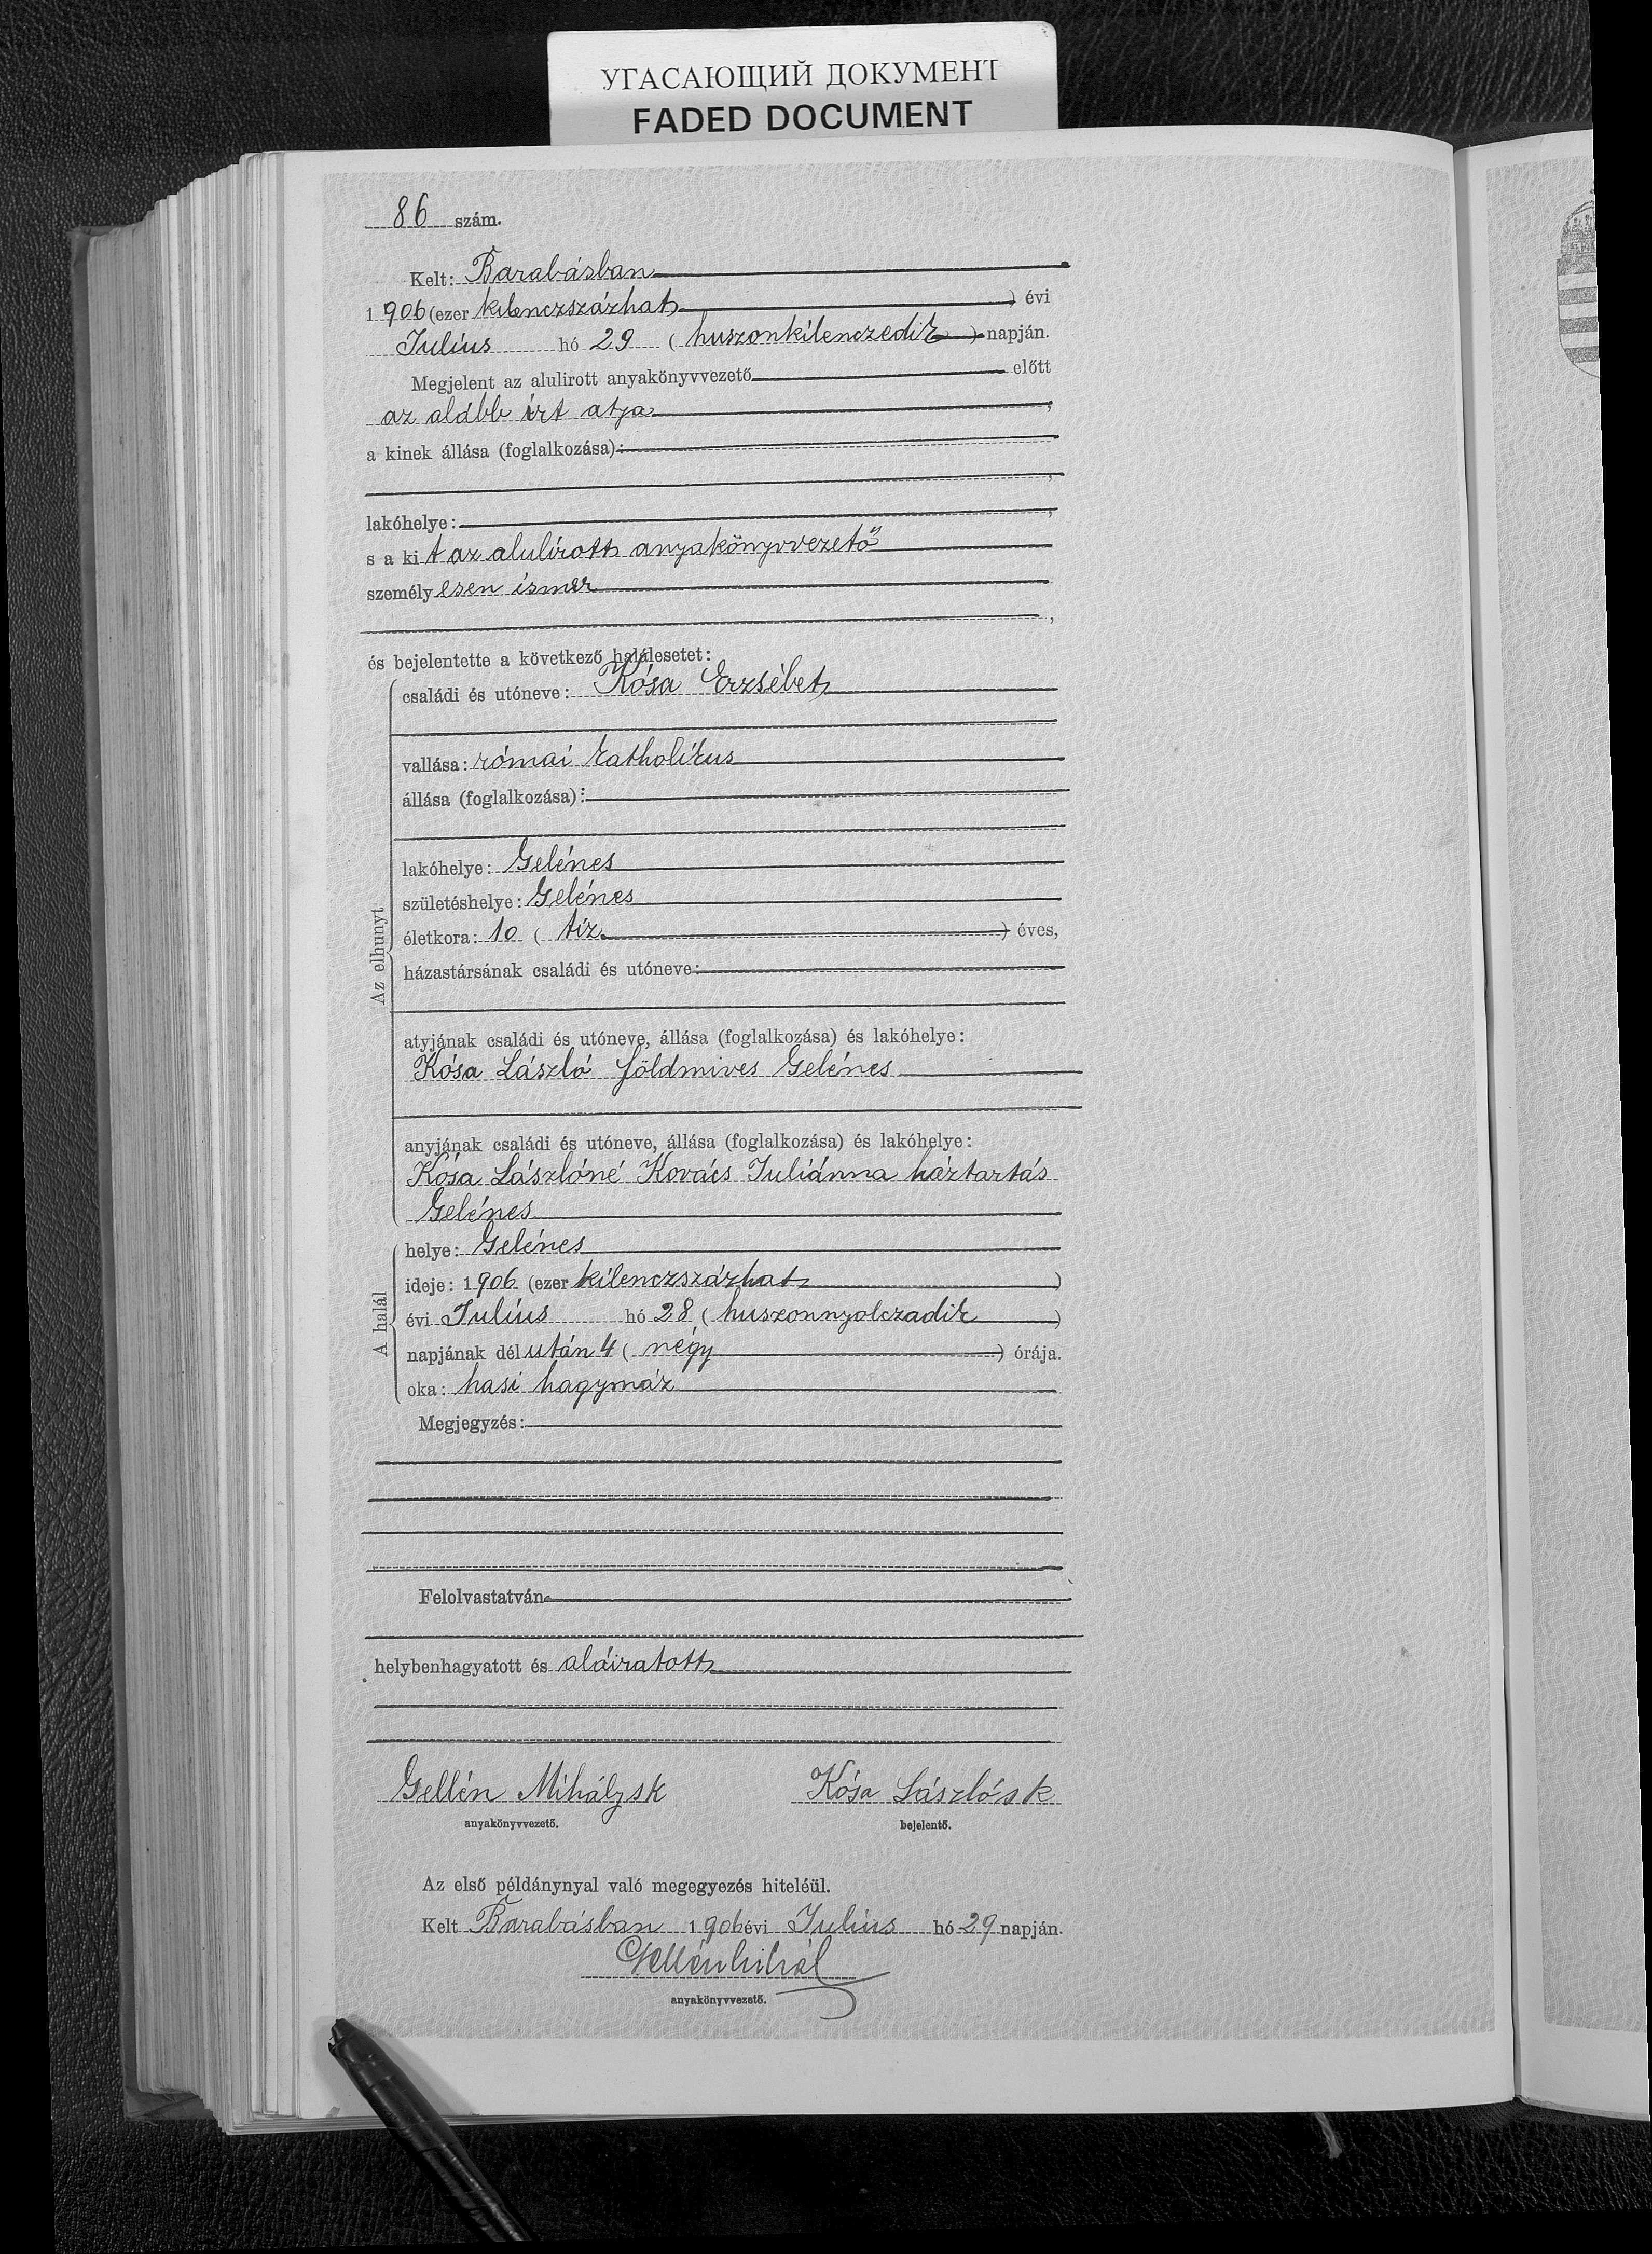 УГАСАЮЩИЙ ДОКУМЕНТ
FADED DOCUMENT
86 szám.
Kelt: Barabásban
1906 (ezer kilenczszázhat) évi
Július hó 29 (huszonkilenczedik) napján.
Megjelent az alulirott anyakönyvvezető előtt
az alább írt atja,
a kinek állása (foglalkozása):
,
lakóhelye: ,
s a kit az alulírott anyakönyvvezető
személyesen ismer
,
és bejelentette a következő halálesetet:
Az elhunyt
családi és utóneve: Kósa Erzsébet
vallása: római katholikus
állása (foglalkozása):
lakóhelye: Gelénes
születéshelye: Gelénes
életkora: 10 (tíz) éves,
házastársának családi és utóneve:
atyjának családi és utóneve, állása (foglalkozása) és lakóhelye:
Kósa László földmives Gelénes
anyjának családi és utóneve, állása (foglalkozása) és lakóhelye:
Kósa Lászlóné Kovács Juliánna háztartás
Gelénes
A halál
helye: Gelénes
ideje: 1906 (ezer kilenczszázhat)
évi Július hó 28 (huszonnyolczadik)
napjának délután 4 (négy) órája.
oka: hasi hagymáz
Megjegyzés:
Felolvastatván
helybenhagyatott és aláiratott
Gellén Mihály sk Kósa László sk
anyakönyvvezető. bejelentő.
Az első példánynyal való megegyezés hiteléül.
Kelt Barabásban 1906 évi Július hó 29 napján.
Gellén Mihál
anyakönyvvezető.